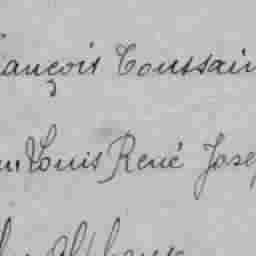 ançois Toussain
Louis René Jose